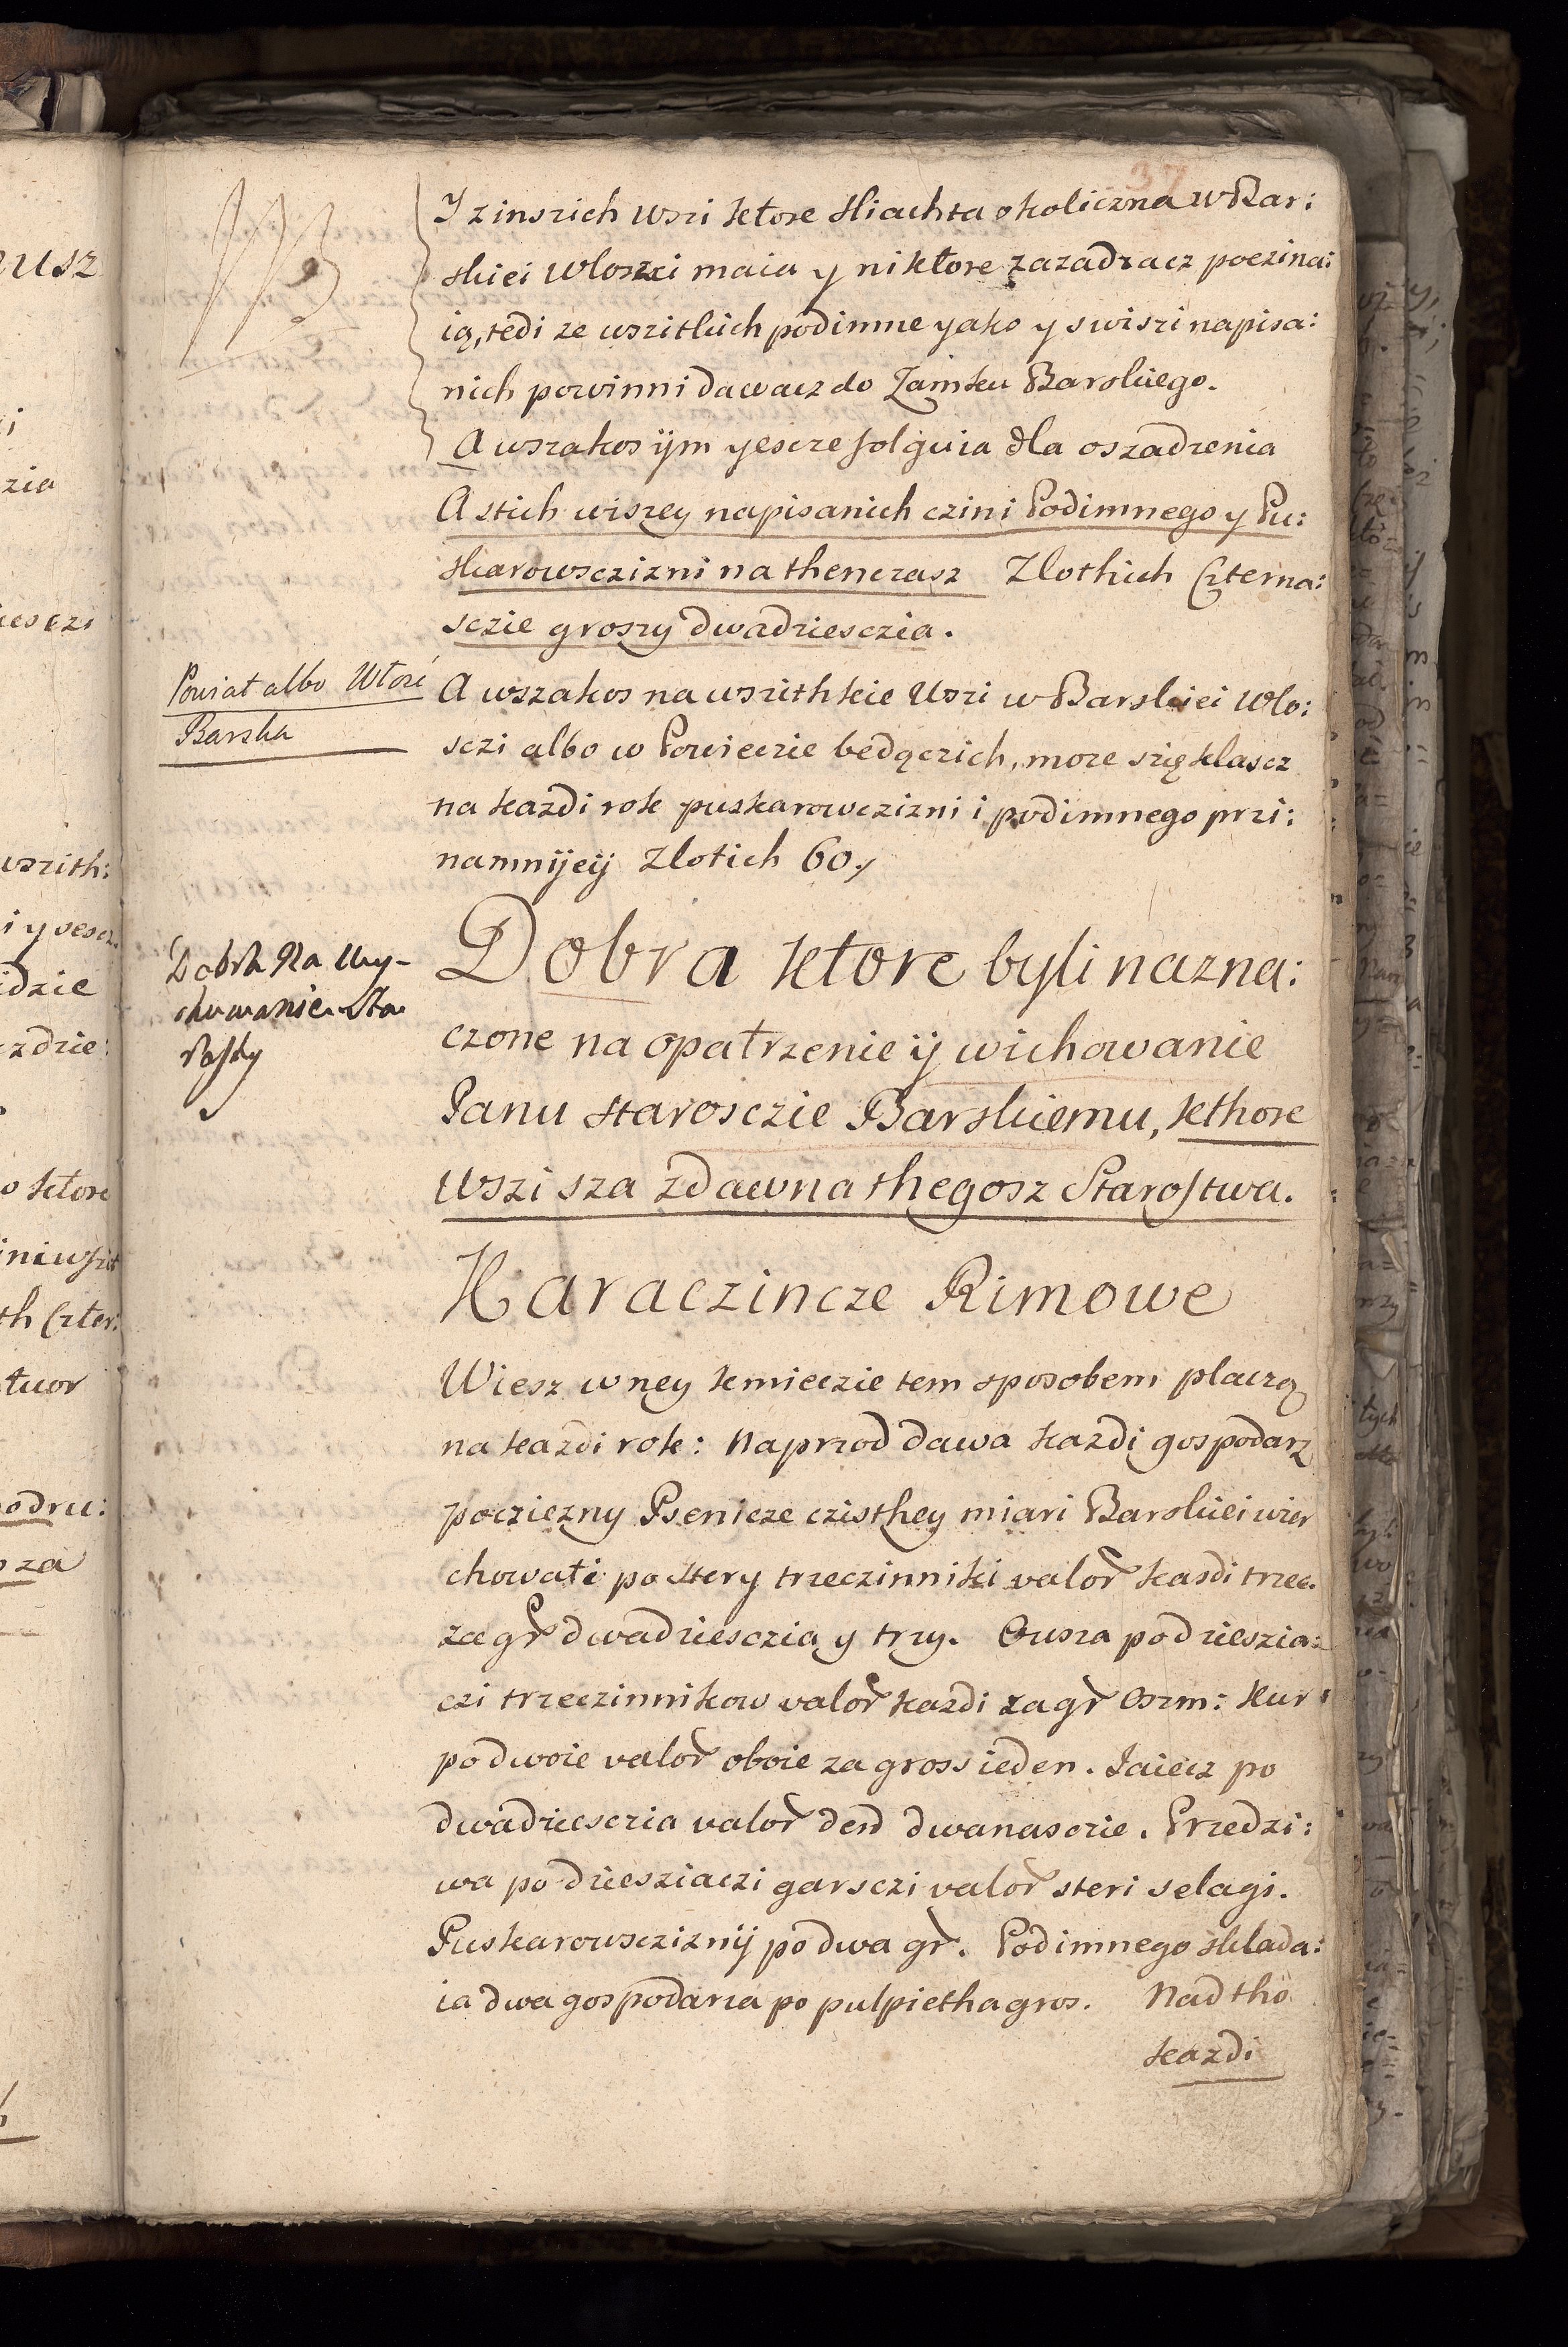 37
NB
Y z inszich wszi ktore sliachta okoliczna w Bar:
skiei Wloszci maia y niktore zazadzacz poczina:
ią, tedi ze wszitkich podimne yako y s wiszi napisa:
nich powinni dawacz do Zamku Barskiego.
A wszakos ijm yescze folguia dla oszadzenia
A stich wiszey napisanich czini Podimnego y Pu:
skarowsczizni na thenczasz Zlothich Czterna:
sczie groszy dwadziesczia.
Powiat albo Włość
Barska
A wszakos na wszithkie Wszi w Barskiei Wlo:
sczi albo w Powieczie bedączich, moze szię klascz
na kazdi rok puskarowczizni i podimnego przi:
namnijeij Zlotich 60.
Dobra Na Wy-
chowanie Sta
rosty
Dobra ktore byli nazna:
czone na opatrzenie ij wichowanie
Panu starosczie Barskiemu, kthore
wszi sza zdawna thegosz Starostwa.
Karaczincze Rimowe
Wiesz w ney kmieczie tem sposobem placzą
na kazdi rok: Naprzod dawa kazdi gospodarz
pocziezny Psenicze czisthey miari Barskiei wier
chowati po sztery trzeczinniki valor kasdi trzec.
za gr dwadziesczia y trzy. Owsza po dzieszia:
czi trzeczinnikow valor kazdi za gr Oszm: Kur
po dwoie valor oboie za gross ieden. Jaiecz po
dwadziesczia valor den dwanasczie. Przedzi:
wa po dziesziaczi garsczi valor steri selagi.
Puskarowscziznij po dwa gr. Podimnego sklada:
ia dwa gospodarza po pulpiethagros. Nad tho
kazdi